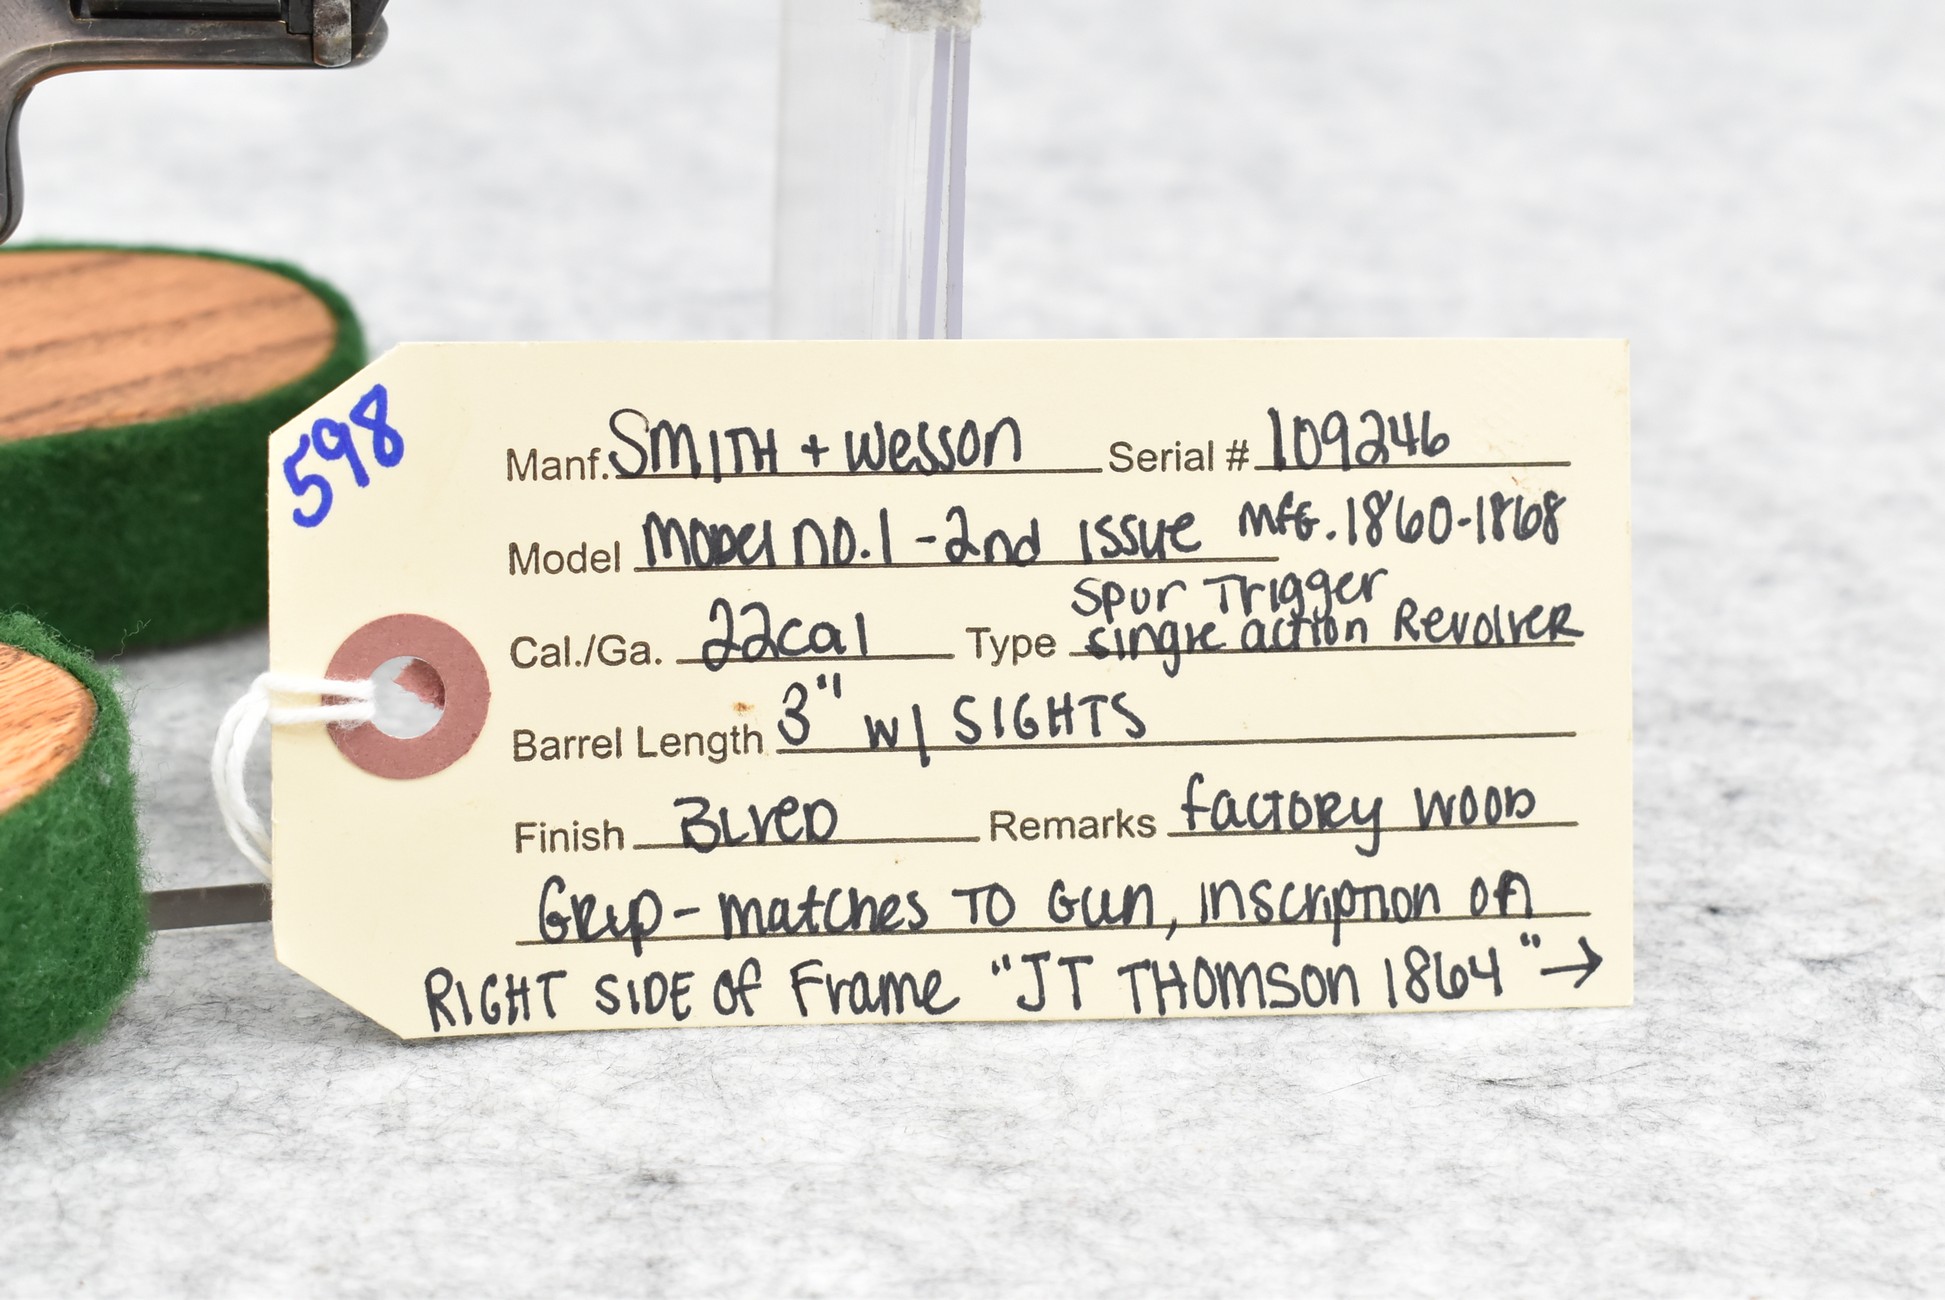 598
Manf. SMITH + Wesson Serial # 109246
Model Model no. 1 - 2nd Issue Mfg. 1860-1868
Spur Trigger
Cal./Ga. 22cal Type single action Revolver
Barrel Length 3" w/ SIGHTS
Finish BLUED Remarks factory wood
Grip - matches to Gun, inscription on
RIGHT SIDE of Frame "JT THOMSON 1864" →